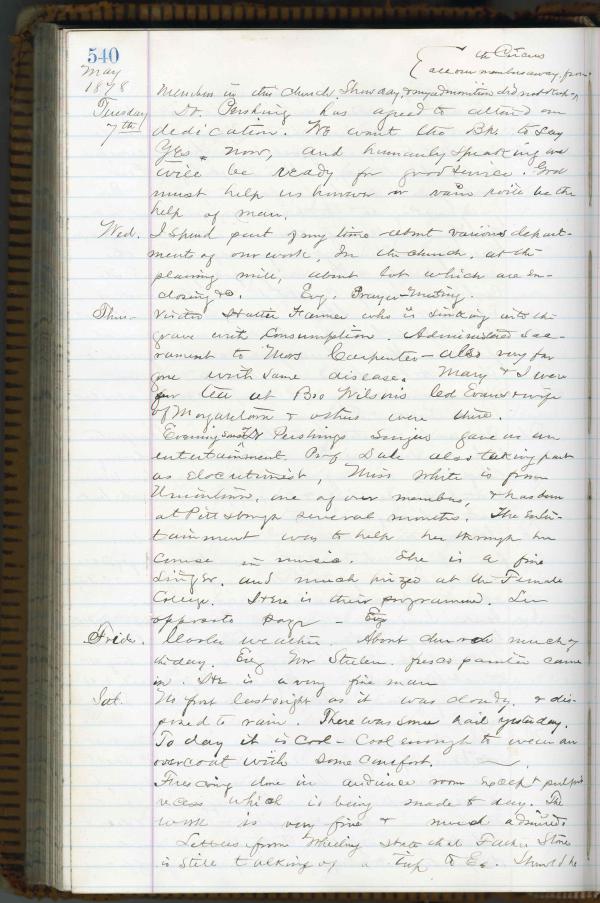 540
the Circus
May
1878
take our members away from
members in the church. Show day, & my admonition did not
Tuesday
7th
Dr. Pershing has agreed to attend our
dedication. We want the Bp. to say
Yes, now, and humanly speaking we
will be ready for good service. God
must help us however or vain will be the
help of man.
Wed. I spend part of my time about various depart-
ments of our work, In the church, at the
planing mill, about lot which are en-
closing &c. Evg. Prayer-Meeting.
Thurs- Visited Hattie Farmer who is sinking into the
grave with Consumption. Administered Sac-
rament to Mrs Carpenter - also very far
gone with same disease. Mary & I were
for tea at Bro Wilson's Evans & wife
of Morgantown & others were there.
Evening some of Dr Pershings Singers gave us an
entertainment. Prof Dale also taking part
as elocutionist, Miss White is from
Uniontown, one of our members, & has been
at Pittsburgh several months. The enter-
tainment was to help her through her
course in music. She is a fine
Singer, and much prized at the Female
College. Here is their programme. See
opposite page -
Frid. weather. About church much of
the day. Evg Mr fresco painter came
in. He is a very fine man
Sat. No frost last night as it was cloudy, & dis-
posed to rain. There was some hail yesterday.
To day it is cool - Cool enough to wear an
overcoat with some comfort.
Frescoing done in audience room except pulpit
recess which is being made to day. The
work is very fine & much admired
Letters from Wheeling state that Father Stone
is still talking of a trip to Eu. Should he